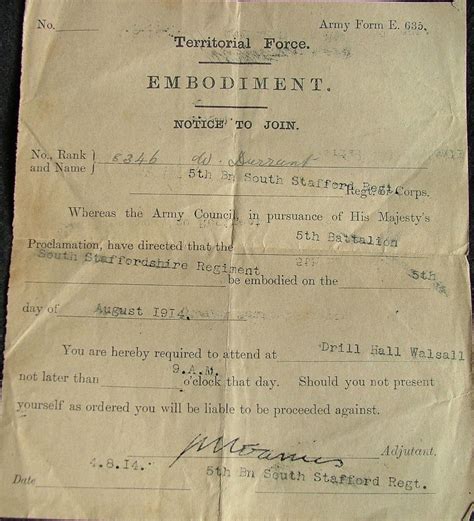 No. Army Form E. 635.
Territorial Force.
EMBODIMENT.
NOTICE TO JOIN.
No., Rank and Name } 5346 W. Durrant
5th Bn South Stafford Regt.
Regt. or Corps.
Whereas the Army Council, in pursuance of His Majesty's
Proclamation, have directed that the 5th Battalion
South Staffordshire Regiment be embodied on the 5th
day of August 1914.
You are hereby required to attend at Drill Hall Walsall
not later than 9.A.M. o'clock that day. Should you not present
yourself as ordered you will be liable to be proceeded against.
Adjutant.
Date 4.8.14. 5th Bn South Stafford Regt.